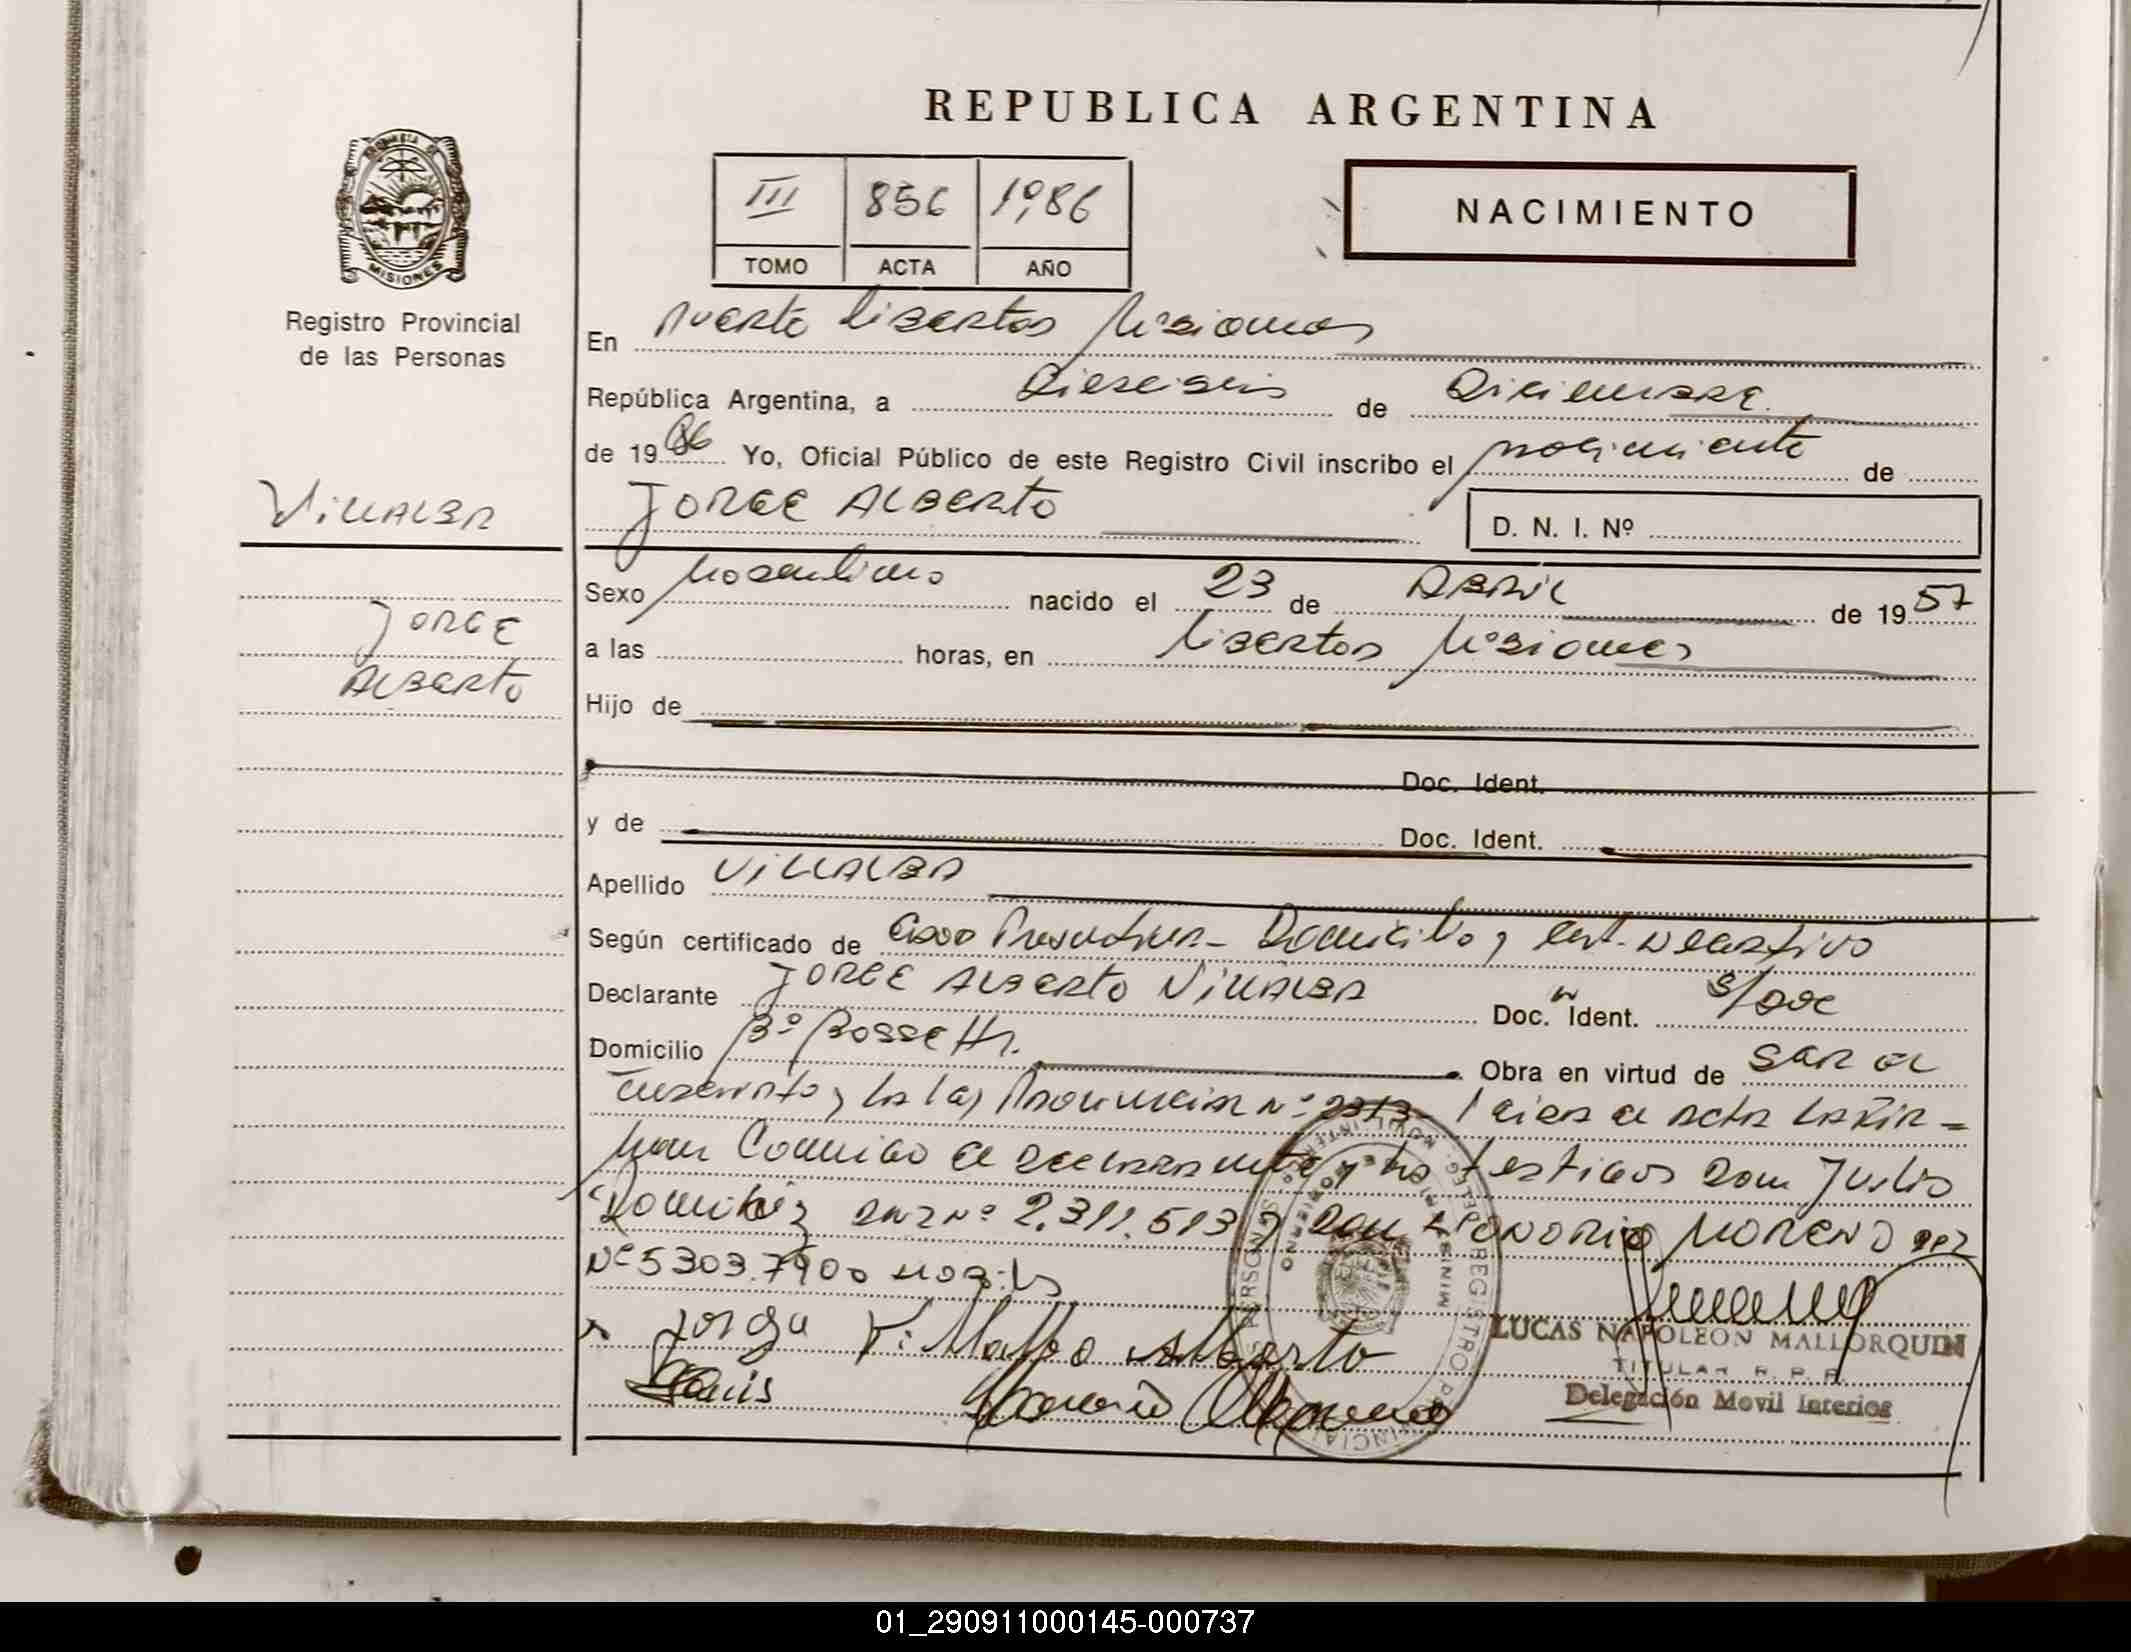 REPUBLICA ARGENTINA
III 856 1986
TOMO ACTA AÑO
NACIMIENTO
MISIONES
Registro Provincial
de las Personas
En Puerto Libertad Misiones
República Argentina, a Dieseiseis de Diciembre
de 1986 Yo, Oficial Público de este Registro Civil inscribo el nacimiento de
VILLALBA
JORGE ALBERTO D. N. I. Nº
Sexo Masculino nacido el 23 de ABRIL de 1957
JORGE
ALBERTO
a las horas, en Libertad Misiones
Hijo de
Doc. Ident.
y de Doc. Ident.
Apellido VILLALBA
Según certificado de Edad Presuntiva - Domicilio y Cert. Negativo
Declarante JORGE ALBERTO VILLALBA Doc. Ident. S/Doc
Domicilio Bº Bossetti. Obra en virtud de SER el
inscripto y la Ley Provincial Nº 2313 - Leida el Acta LA FIR=
man Conmigo el declarante y los testigos Don Julio
DNI Nº 2.311.513 y Don HONORIO MORENO
Nº 5303.790
Jorge Villalba Alberto
LUCAS NAPOLEON MALLORQUIN
TITULAR R. P. P.
Delegación Movil Interior
01_290911000145-000737